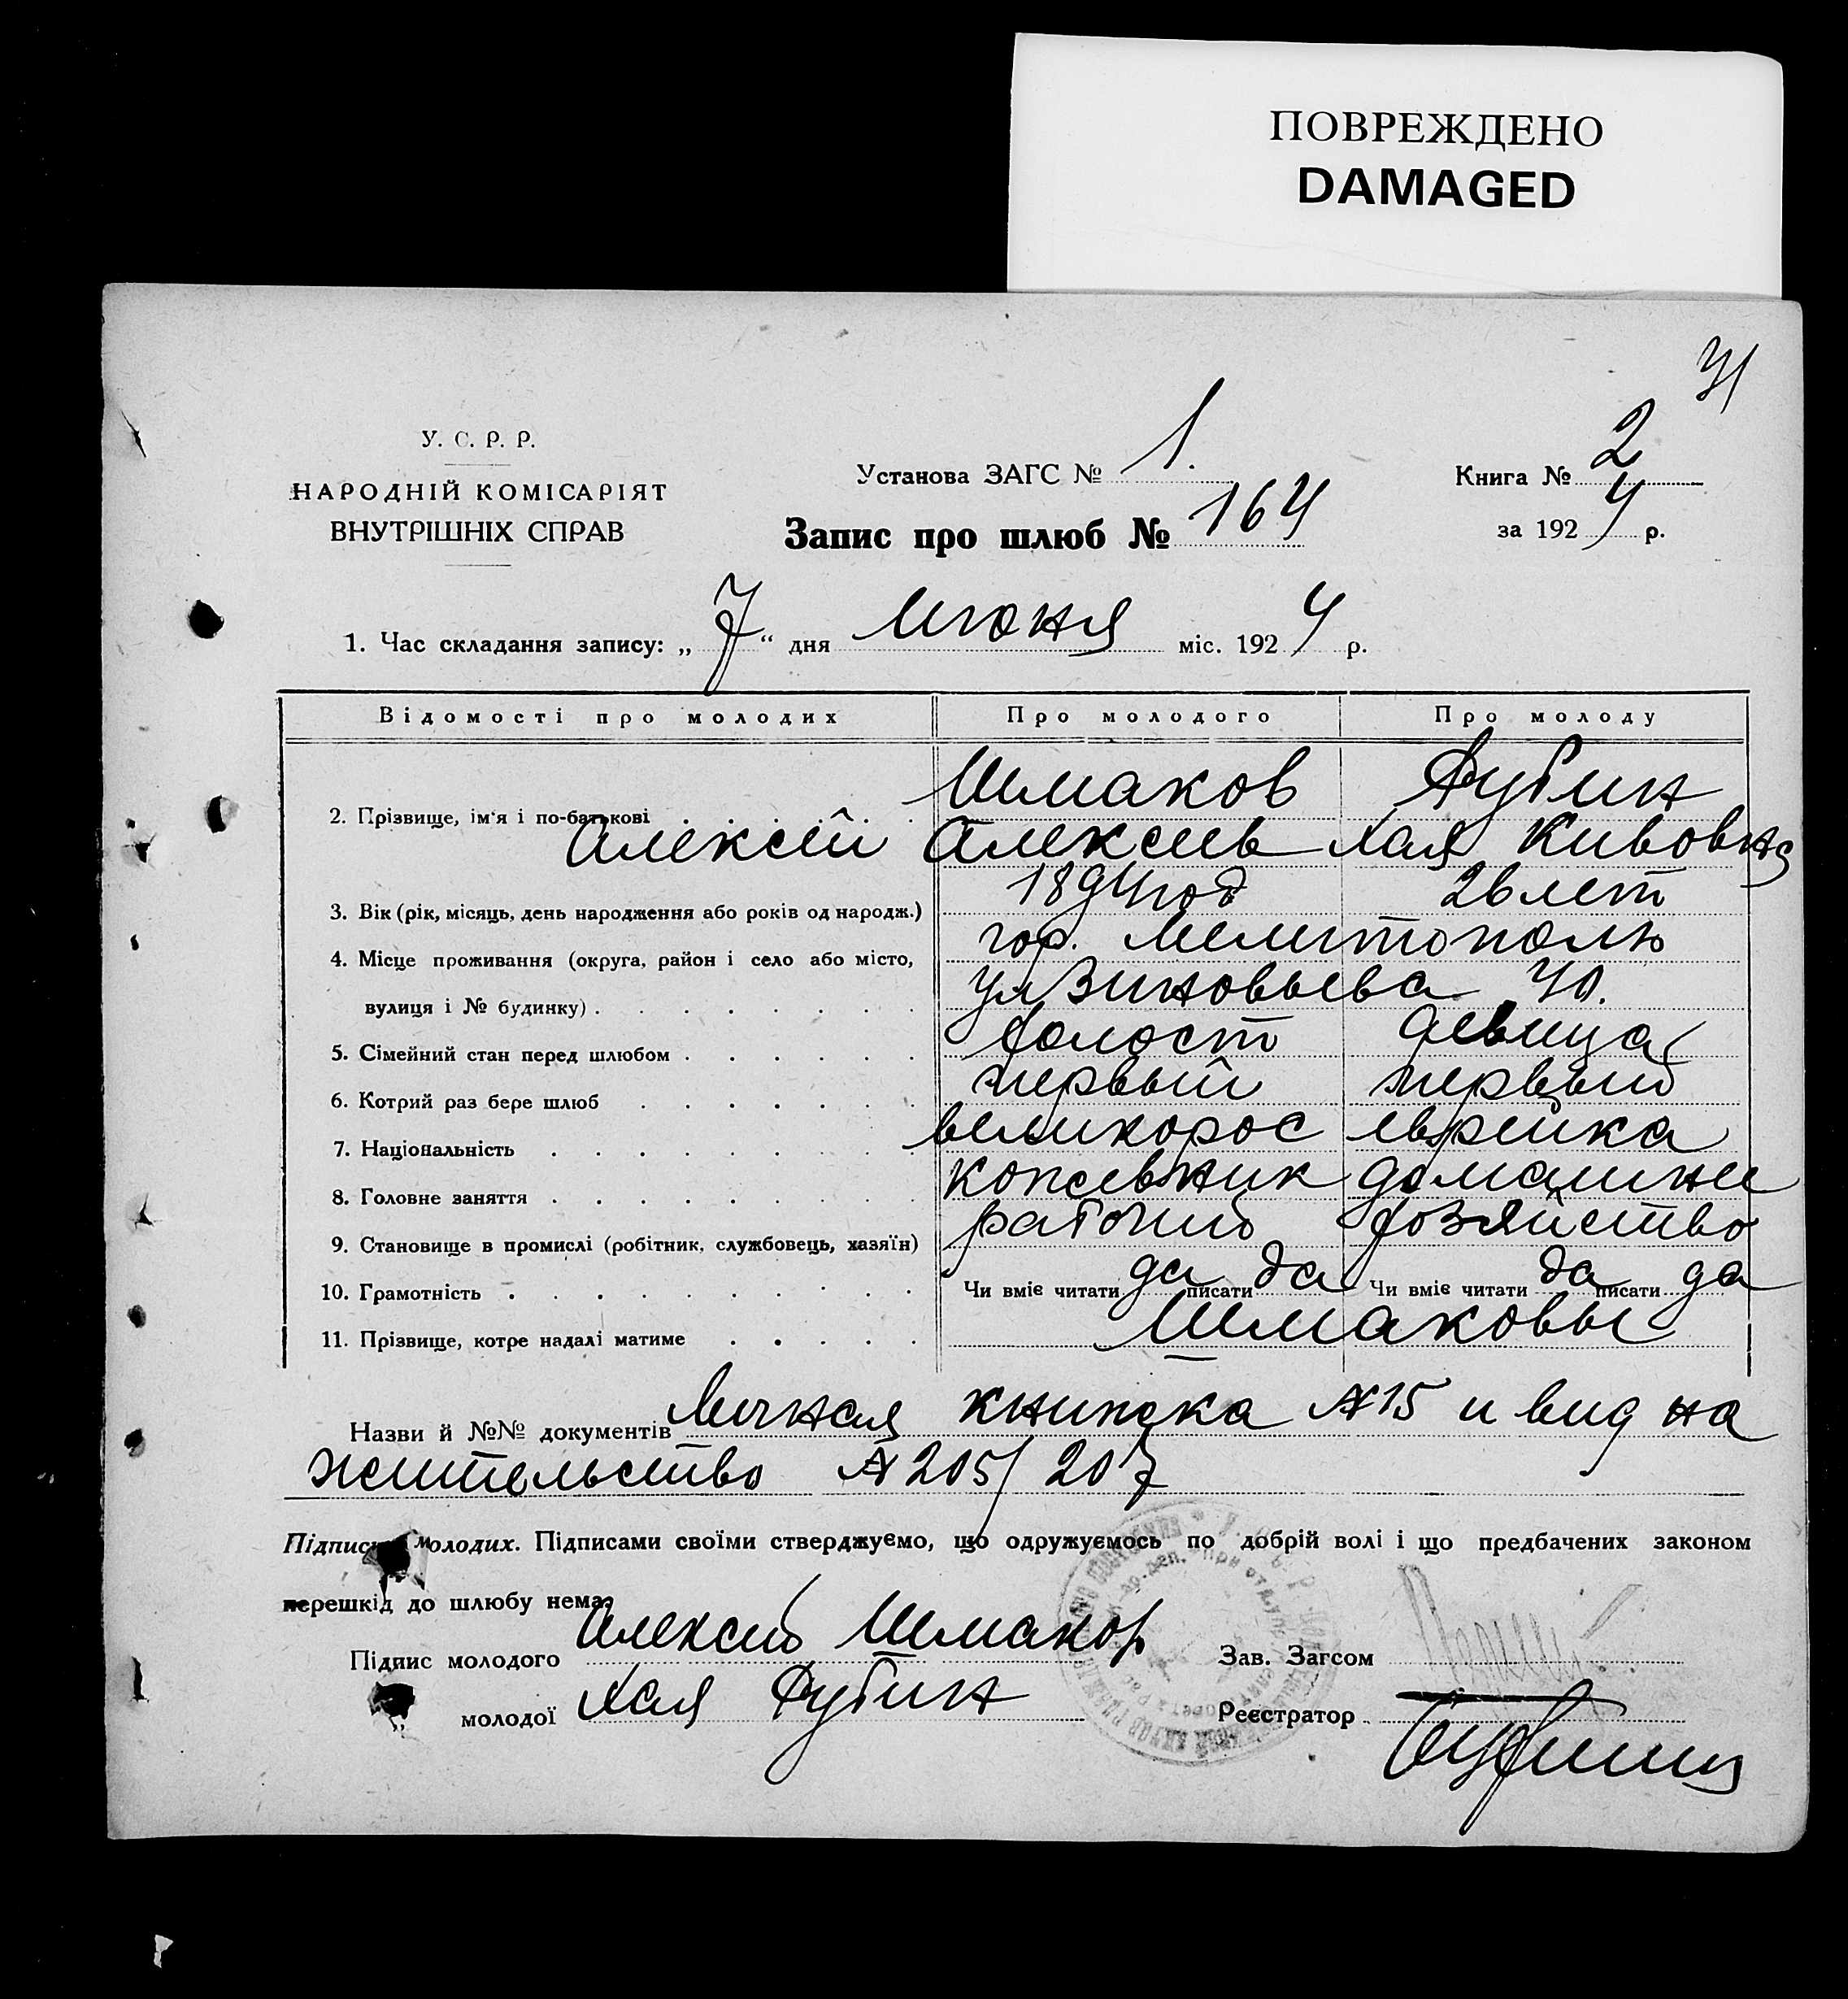 ПОВРЕЖДЕНО
DAMAGED
31
У. С. Р. Р.
НАРОДНІЙ КОМІСАРІЯТ
ВНУТРІШНІХ СПРАВ
Установа ЗАГС № 1.
Запис про шлюб № 164
Книга № 2
за 1924 р.
1. Час складання запису: „7“ дня Июня міс. 1924 р.
Відомості про молодих Про молодого Про молоду
2. Прізвище, ім'я і по-батькові Шмаков Дубин
Алексей Алексеев Хая Кивовна
3. Вік (рік, місяць, день народження або років од народж.) 1894 год 26 лет
4. Місце проживання (округа, район і село або місто, гор. Мелитополь
вулиця і № будинку) ул Зиновьева 40.
5. Сімейний стан перед шлюбом холост девица
6. Котрий раз бере шлюб первый первый
7. Національність великорос еврейка
8. Головне заняття кожевник домашнее
9. Становище в промислі (робітник, службовець, хазяїн) рабочий хозяйство
10. Грамотність Чи вміє читати да писати да Чи вміє читати да писати да
11. Прізвище, котре надалі матиме Шмаковы
Назви й №№ документів Личная книжка № 15 и вид на
жительство № 205/207
Підписи молодих. Підписами своїми стверджуємо, що одружуємось по добрій волі і що предбачених законом
перешкід до шлюбу нема.
Підпис молодого Алексей Шмаков Зав. Загсом
молодої Хая Дубин Реєстратор